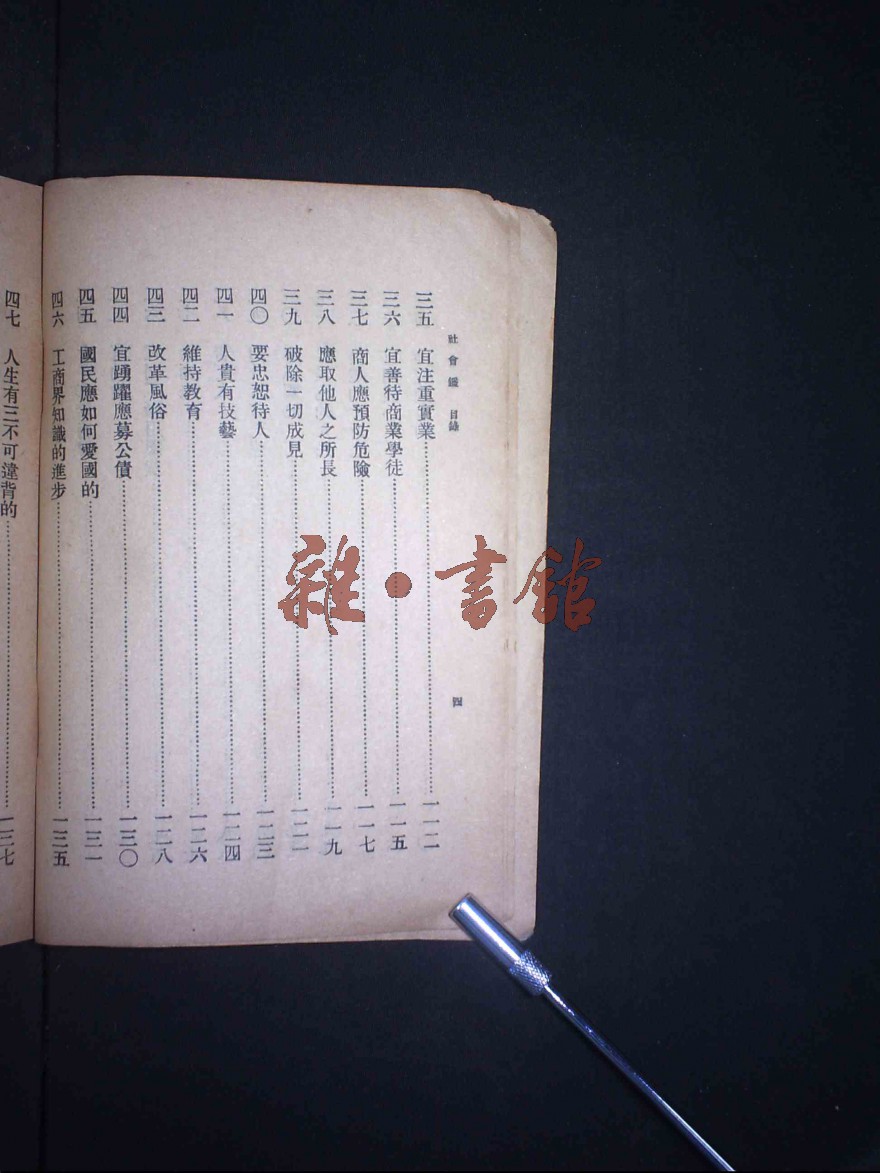 社會鑑 目錄
四
三五 宜注重實業 一一二
三六 宜善待商業學徒 一一五
三七 商人應預防危險 一一七
三八 應取他人之所長 一一九
三九 破除一切成見 一二一
四〇 要忠恕待人 一二三
四一 人貴有技藝 一二四
四二 維持教育 一二六
四三 改革風俗 一二八
四四 宜踴躍應募公債 一三〇
四五 國民應如何愛國的 一三一
四六 工商界知識的進步 一三五
四七 人生有三不可違背的 一三七
雜·書館